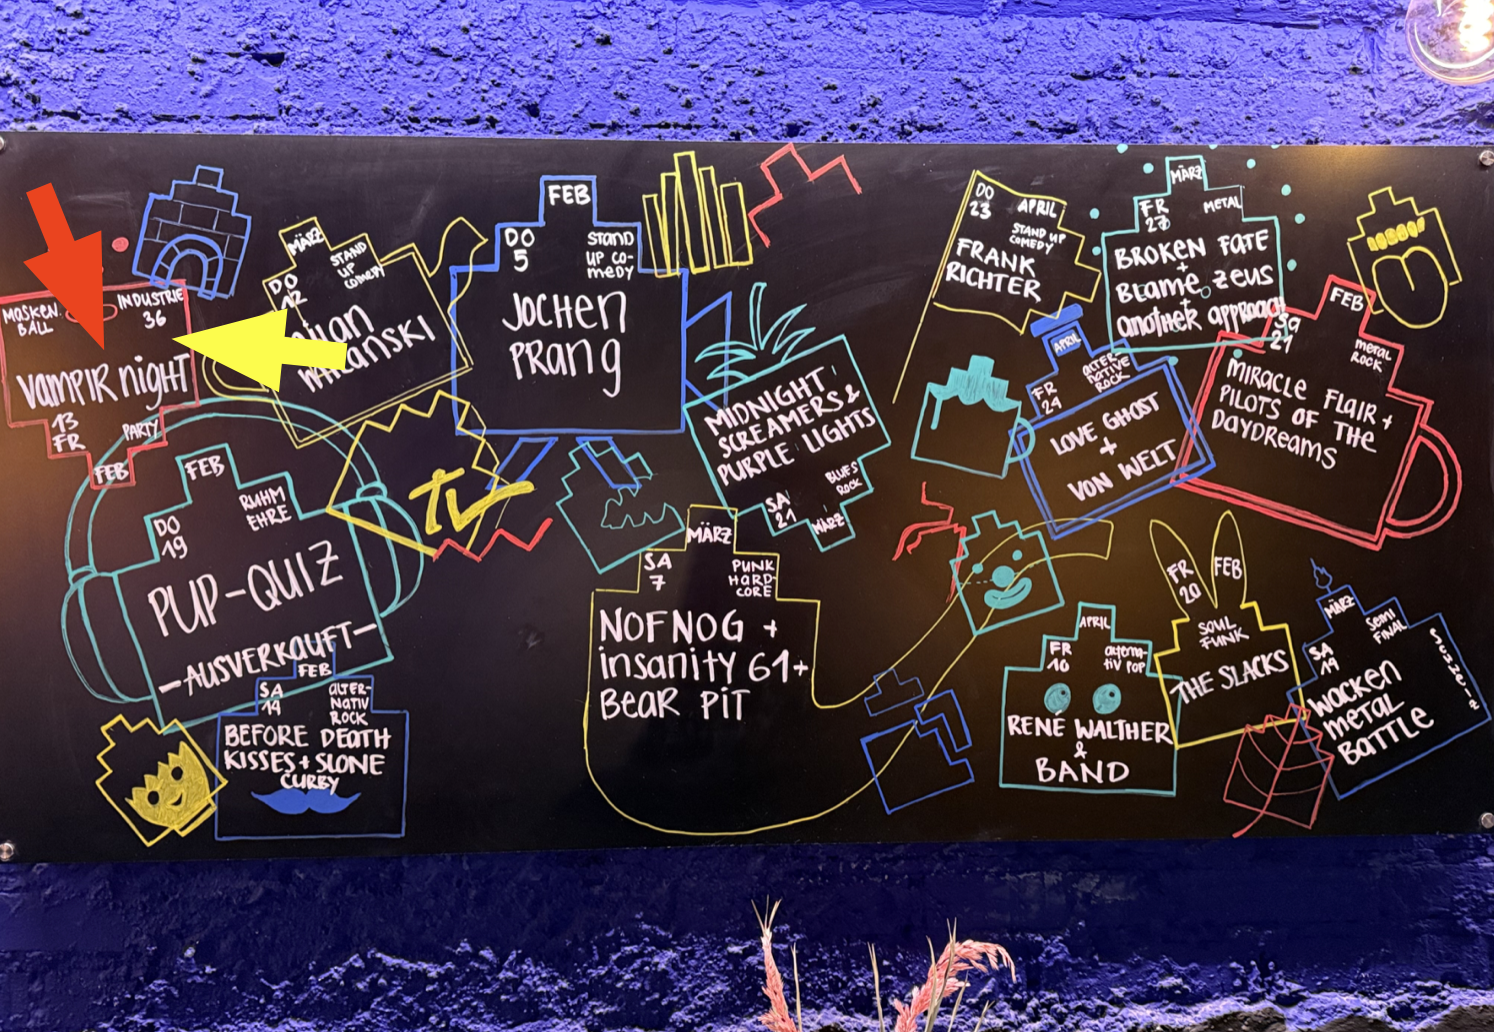 MASKEN
BALL
INDUSTRIE
36
VAMPIR NIGHT
13
FR
PARTY
FEB
MÄRZ
STAND
UP
COMEDY
DO
12
FEB
DO
5
STAND
UP CO-
MEDY
JOCHEN
PRANG
FEB
DO
19
RUHM
EHRE
PUP-QUIZ
-AUSVERKAUFT-
FEB
SA
14
ALTER-
NATIV
ROCK
BEFORE DEATH
KISSES + SLONE
CURBY
MIDNIGHT
SCREAMERS &
PURPLE LIGHTS
BLUES
ROCK
SA
21
MÄRZ
MÄRZ
SA
7
PUNK
HARD-
CORE
NOFNOG +
INSANITY 61+
BEAR PIT
DO
23
APRIL
STAND UP
COMEDY
FRANK
RICHTER
MÄRZ
FR
27
METAL
BROKEN FATE
+
BLAME ZEUS
+
ANOTHER APPROACH
APRIL
FR
24
ALTER-
NATIVE
ROCK
LOVE GHOST
+
VON WELT
FEB
SA
21
METAL
ROCK
MIRACLE FLAIR +
PILOTS OF THE
DAYDREAMS
APRIL
FR
10
ALTERNA-
TIV POP
RENÉ WALTHER
&
BAND
FR
20
FEB
SOUL
FUNK
THE SLACKS
MÄRZ
SA
14
SEMI
FINAL
SCHWEIZ
WACKEN
METAL
BATTLE